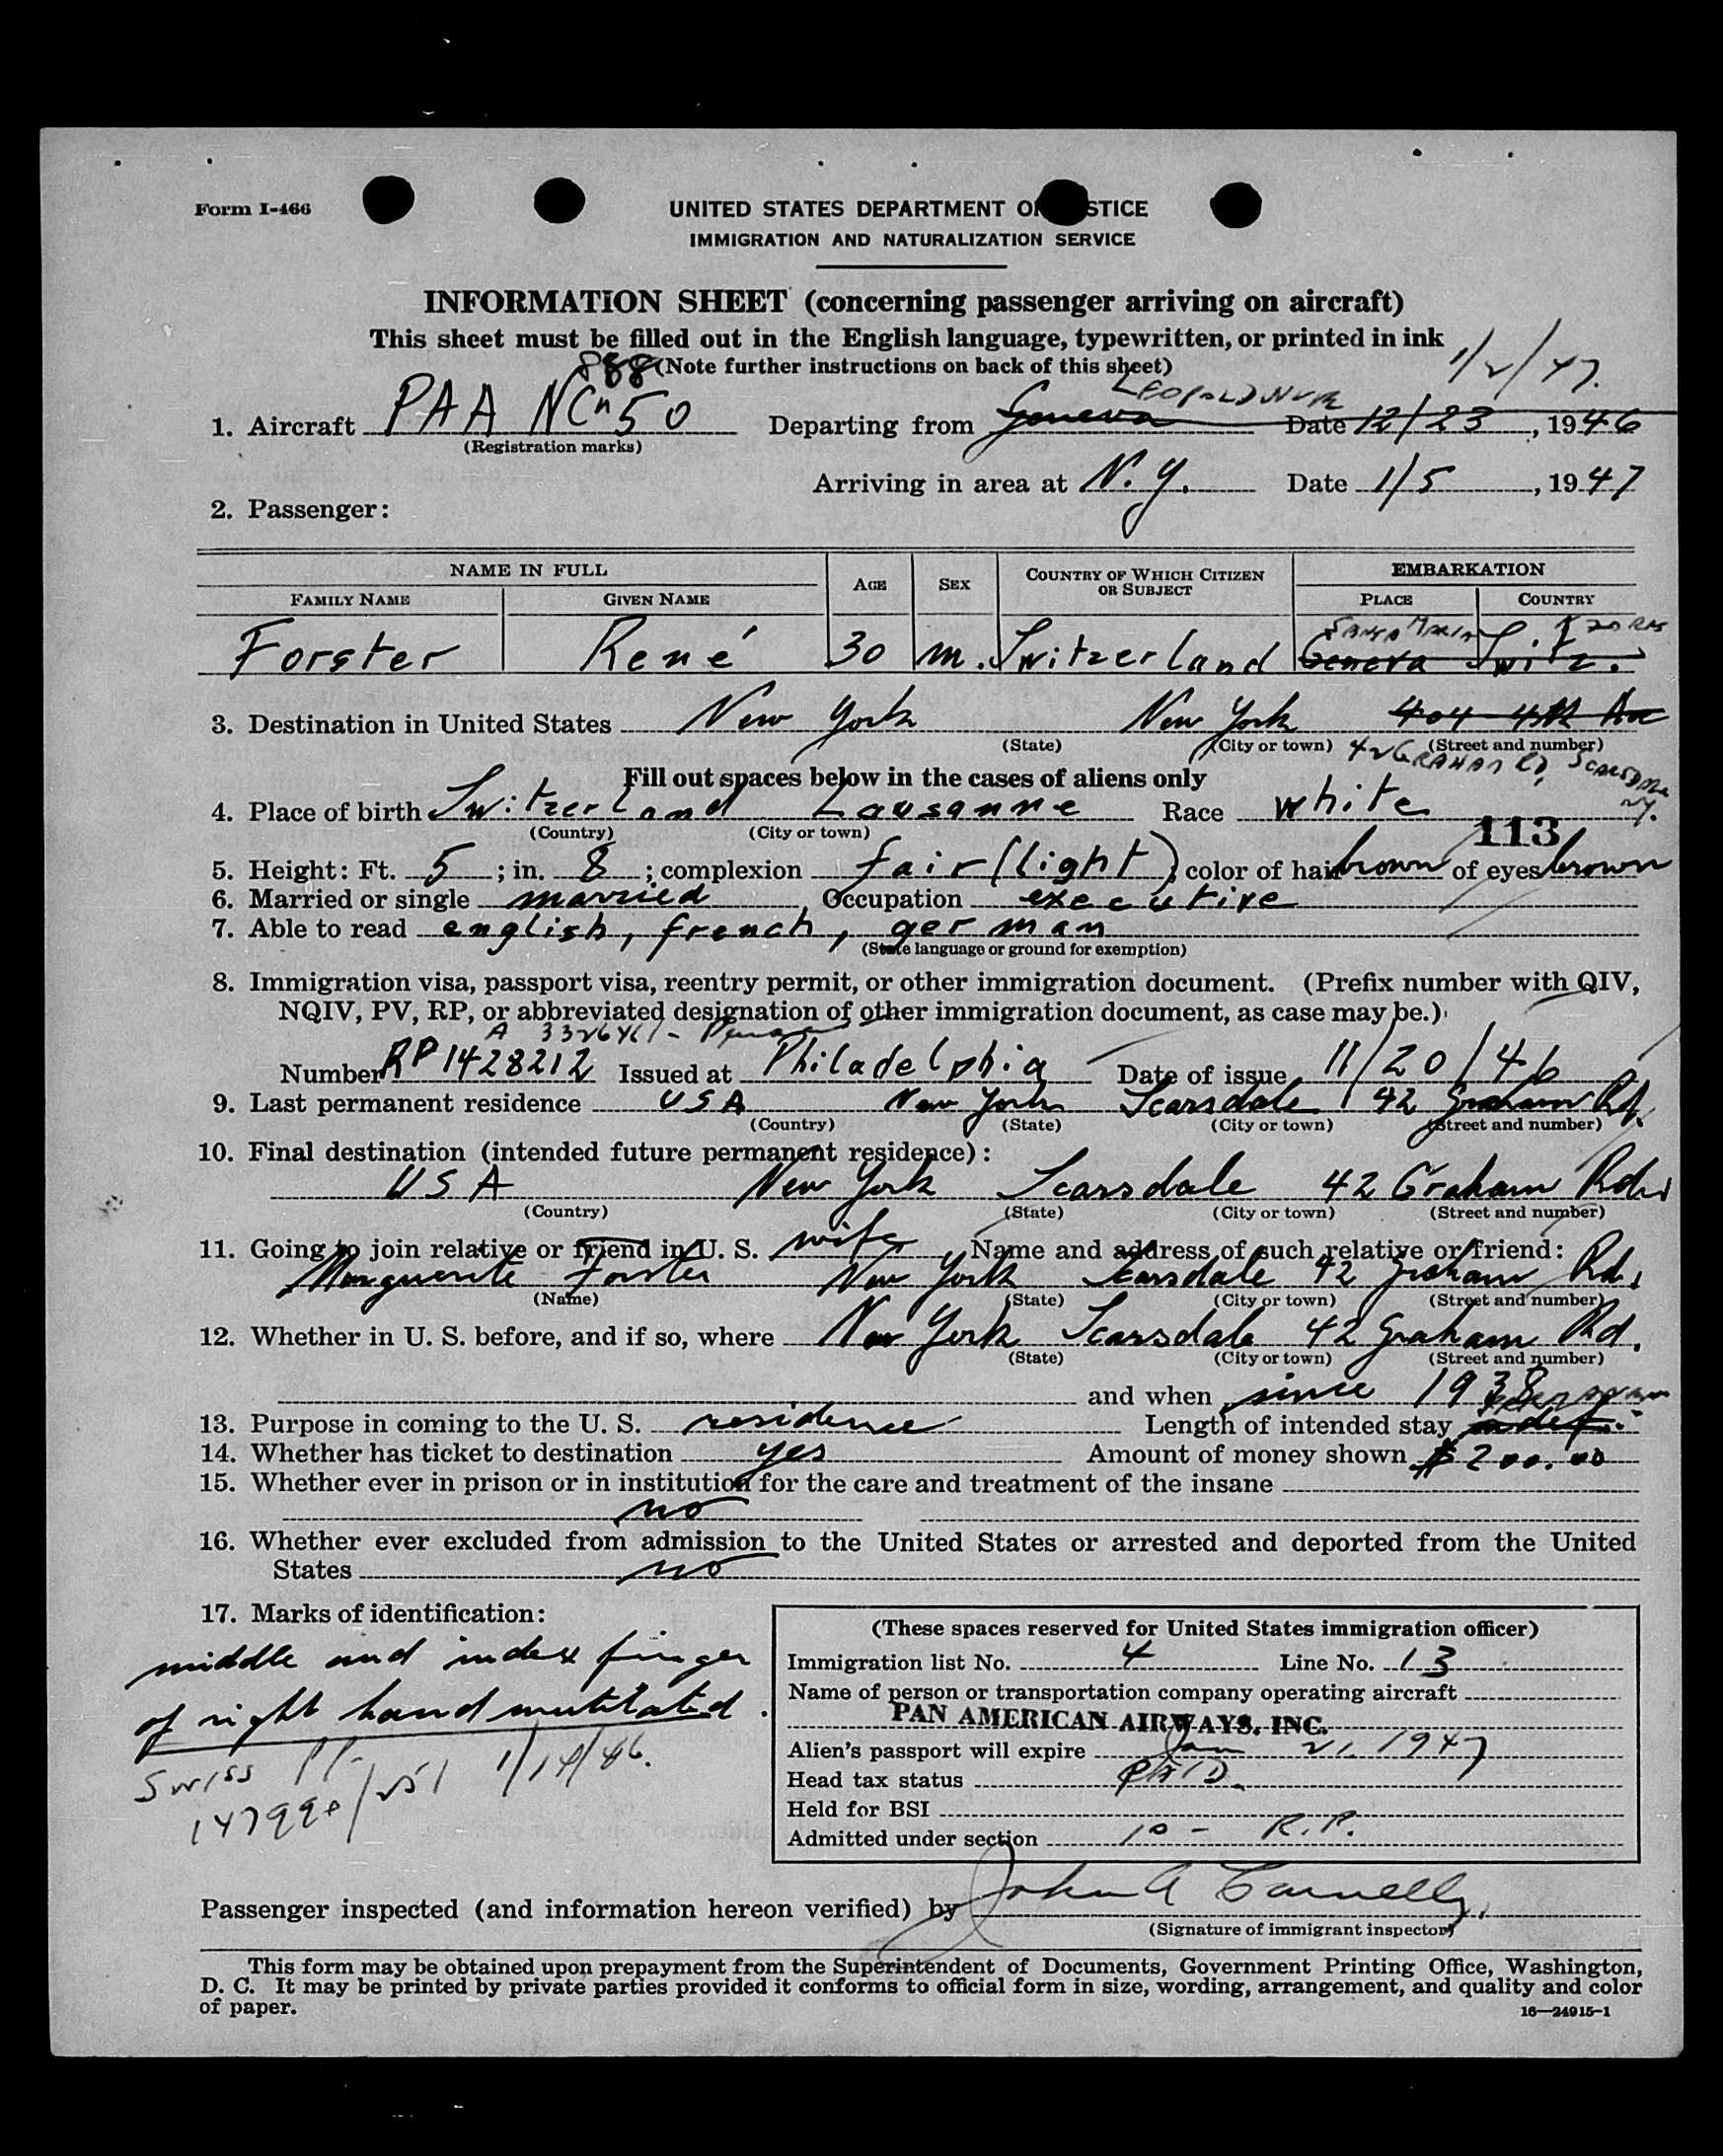 Form I-466
UNITED STATES DEPARTMENT O STICE
IMMIGRATION AND NATURALIZATION SERVICE
INFORMATION SHEET (concerning passenger arriving on aircraft)
This sheet must be filled out in the English language, typewritten, or printed in ink
(Note further instructions on back of this sheet)
1/2/47.
888
LEOPOLDVILLE
1. Aircraft PAA NC 50 Departing from Geneva Date 12/23, 1946
(Registration marks)
Arriving in area at N.Y. Date 1/5, 1947
2. Passenger:
NAME IN FULL AGE SEX COUNTRY OF WHICH CITIZEN OR SUBJECT EMBARKATION
FAMILY NAME GIVEN NAME PLACE COUNTRY
SANTA MARIA AZORES
Forster René 30 m. Switzerland Geneva Switz.
3. Destination in United States New York New York 404 4th Ave
(State) (City or town) (Street and number)
42 GRAHAM RD, SCARSDALE N.Y.
Fill out spaces below in the cases of aliens only
4. Place of birth Switzerland Lausanne Race white
(Country) (City or town)
113
5. Height: Ft. 5; in. 8; complexion fair (light) color of hair brown of eyes brown
6. Married or single married, Occupation executive
7. Able to read english, french, german
(State language or ground for exemption)
8. Immigration visa, passport visa, reentry permit, or other immigration document. (Prefix number with QIV,
NQIV, PV, RP, or abbreviated designation of other immigration document, as case may be.)
A 3326461 -
Number RP 1428212 Issued at Philadelphia Date of issue 11/20/46
9. Last permanent residence USA New York Scarsdale 42 Graham Rd.
(Country) (State) (City or town) (Street and number)
10. Final destination (intended future permanent residence):
USA New York Scarsdale 42 Graham Rd.
(Country) (State) (City or town) (Street and number)
11. Going to join relative or friend in U. S. wife Name and address of such relative or friend:
Marguerite Forster New York Scarsdale 42 Graham Rd.
(Name) (State) (City or town) (Street and number)
12. Whether in U. S. before, and if so, where New York Scarsdale 42 Graham Rd.
(State) (City or town) (Street and number)
and when since 1938
13. Purpose in coming to the U. S. residence Length of intended stay indef.
14. Whether has ticket to destination yes Amount of money shown $200.00
15. Whether ever in prison or in institution for the care and treatment of the insane
no
16. Whether ever excluded from admission to the United States or arrested and deported from the United
States no
17. Marks of identification:
middle and index finger
of right hand mutilated.
Swiss PP.
147990/251 1/14/46.
(These spaces reserved for United States immigration officer)
Immigration list No. 4 Line No. 13
Name of person or transportation company operating aircraft
PAN AMERICAN AIRWAYS, INC.
Alien's passport will expire Jan 21, 1947
Head tax status PAID
Held for BSI
Admitted under section 10 - R.P.
Passenger inspected (and information hereon verified) by John A
(Signature of immigrant inspector)
This form may be obtained upon prepayment from the Superintendent of Documents, Government Printing Office, Washington,
D. C. It may be printed by private parties provided it conforms to official form in size, wording, arrangement, and quality and color
of paper.
16—24915-1